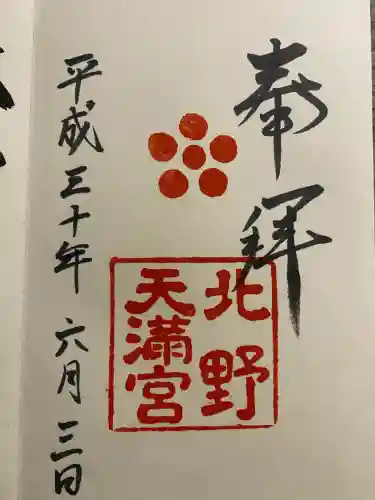 奉拝
北野
天満宮
平成三十年 六月三日